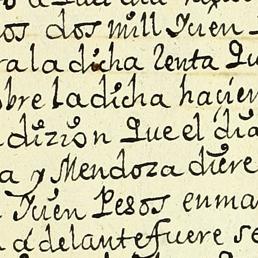 os dos mill Y cien
ra la dicha Renta Que
obre la dicha hacien
dizion Que el dia
a y Mendoza diere
Y cien Pesos en ma
a delante fuere se